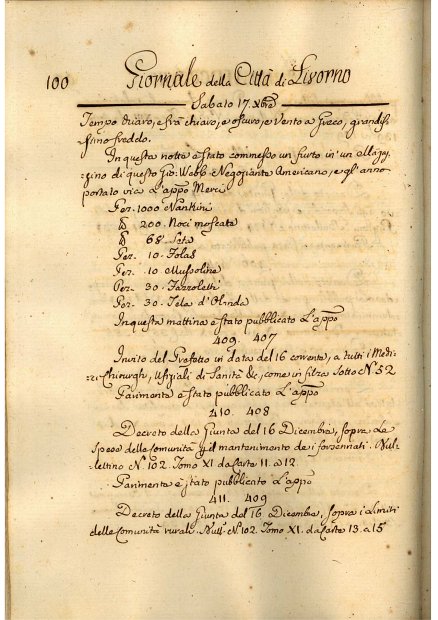 100 Giornale della Città di Livorno
Sabato 17. Xbre
Tempo chiaro, e frà chiaro, e oscuro, e Vento a Greco, grandis-
simo freddo.
In questa notte è stato commesso un furto in un Magaz-
zino di questo Gio: Webb Negoziante Americano, e gl'anno
portato via L'appo Merci
Per. 1000 Nankini
lb 200. Noci moscate
lb 68 Seta
Per. 10. Folas
Per. 10 Mussoline
Per. 30. Fazzoletti
Per. 30. Tela d'Olanda
In questa mattina è stato pubblicato L'appo
409. 407
Invito del Prefetto in data del 16 corrente, a tutti i Medi-
ci Chirurghi, Ufiziali di Sanità &c, come in filza Sotto N.° 52
Parimente è stato pubblicato L'appo
410. 408
Decreto della Giunta del 16 Dicembre, sopra Le
Spese delle Comunità p il mantenimento de' forsennati. Bul-
lettino N.° 102. Tomo XI da Carte 11. a 12.
Parimente è stato pubblicato L'appo
411. 409
Decreto della Giunta del 16 Dicembre, sopra i Limiti
delle Comunità rurali. Bull. N.° 102. Tomo XI. da Carte 13. a 15